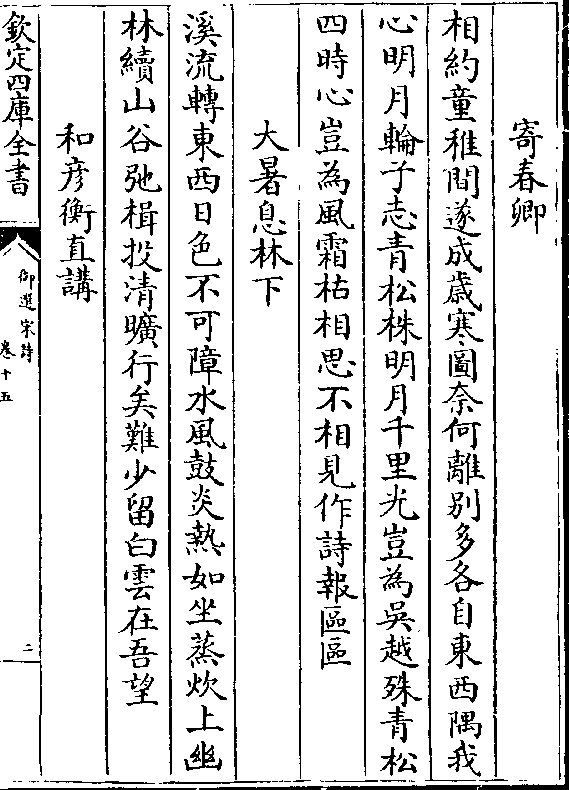 寄春卿
相約童稚間遂成歲寒圖奈何離别多各自東西隅我
心明月輪子志青松株明月千里光豈為吳越殊青松
四時心豈為風霜枯相思不相見作詩報區區
大暑息林下
溪流轉東西日色不可障水風鼓炎熱如坐蒸炊上幽
林續山谷弛楫投清曠行矣難少留白雲在吾望
和彦衡直講
欽定四庫全書
御選宋詩
卷十五
二